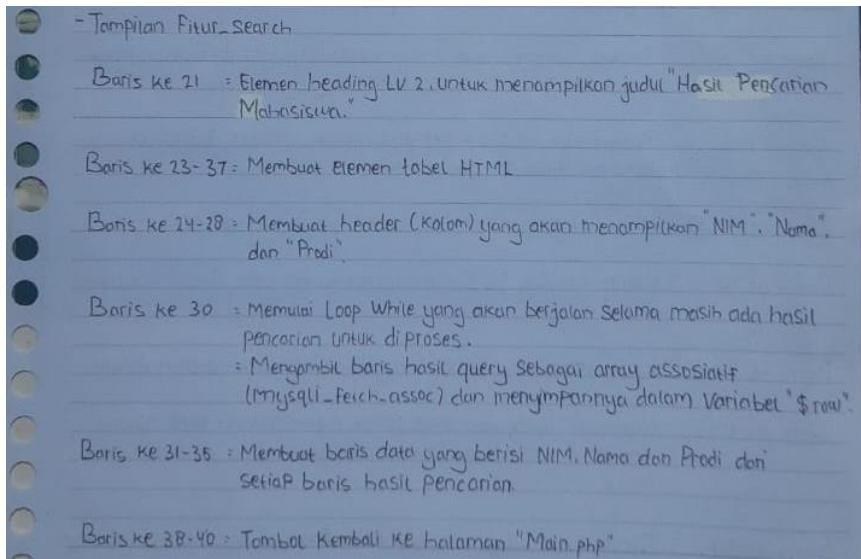 - Tampilan Fitur_Search
Baris ke 21 : Elemen heading LV 2. untuk menampilkan judul "Hasil Pencarian
Mahasiswa."
Baris ke 23-37 : Membuat Elemen tabel HTML
Baris ke 24-28 : Membuat header (Kolom) yang akan menampilkan "NIM". "Nama".
dan "Prodi".
Baris ke 30 : Memulai Loop While yang akan berjalan selama masih ada hasil
pencarian untuk di proses.
: Mengambil baris hasil query sebagai array assosiatif
(mysqli_fetch_assoc) dan menyimpannya dalam Variabel "$row".
Baris ke 31-35 : Membuat baris data yang berisi NIM. Nama dan Prodi dari
setiap baris hasil pencarian.
Baris ke 38-40 : Tombol Kembali ke halaman "Main.php"